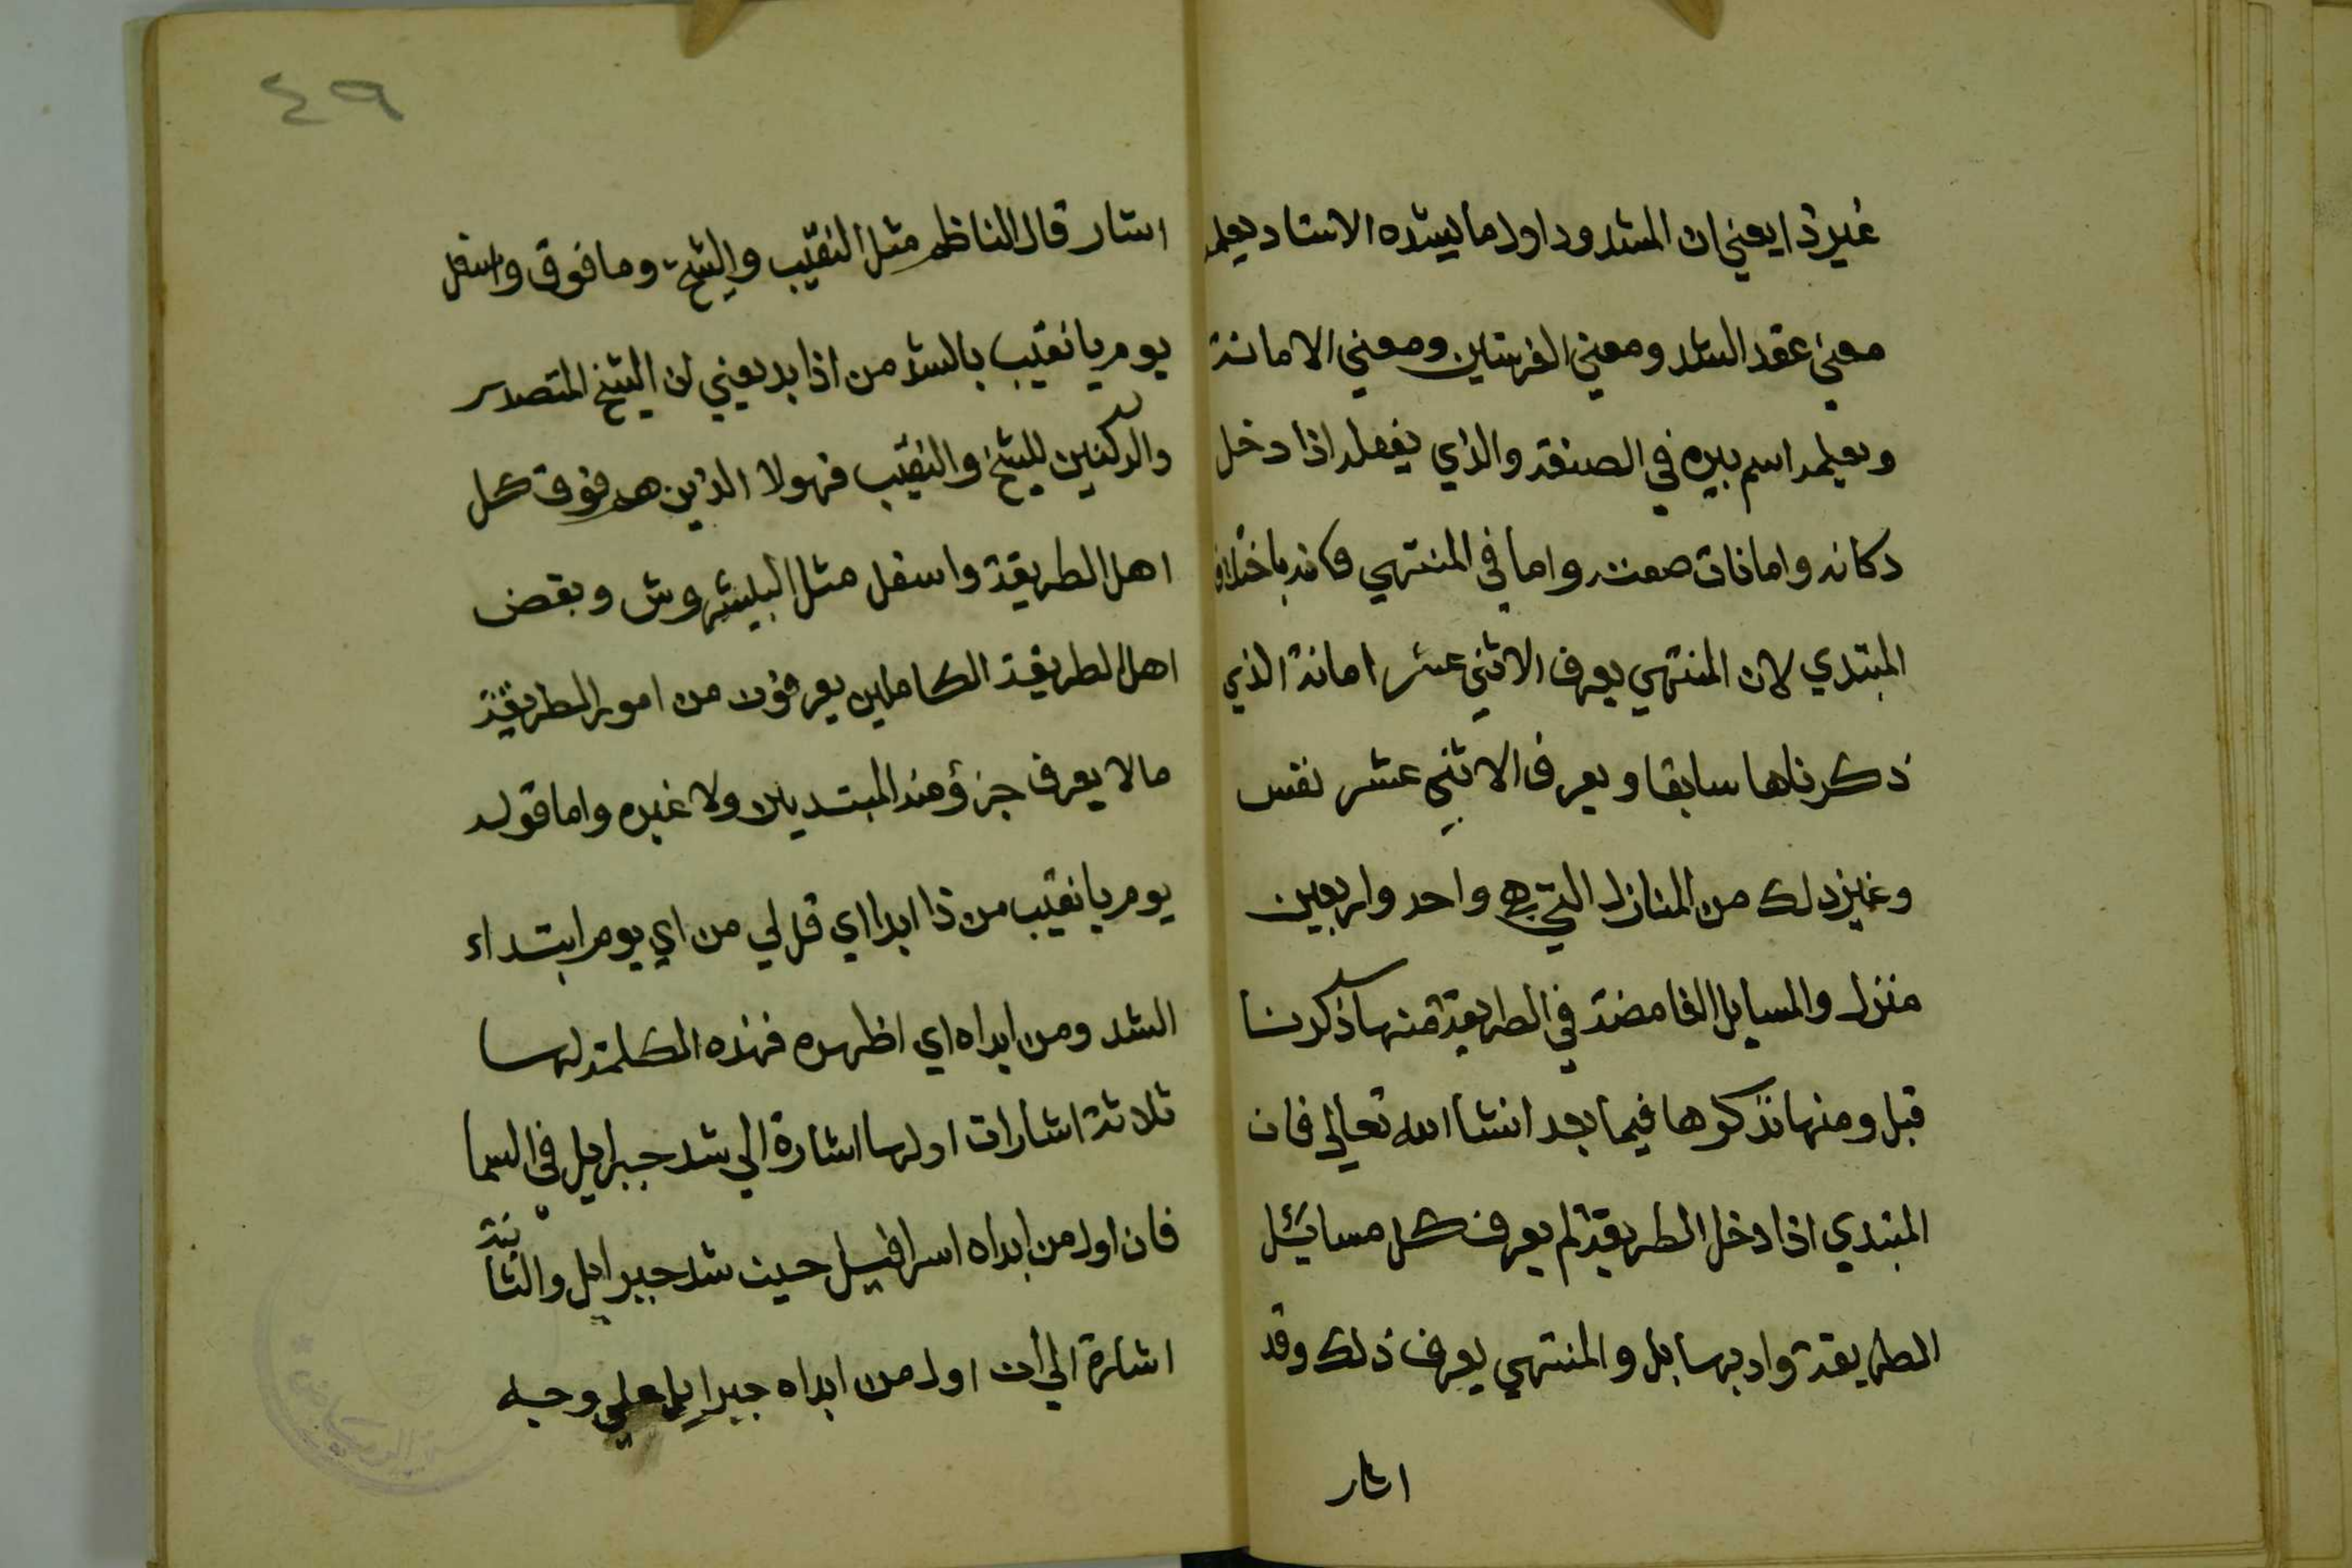 غير ذا يعني ان المشدود اول ما يشده الاستاد يعلمه
معني عقد الشد ومعني الفرستين ومعني الامانة
ويعلمه اسم بيره في الصنعة والذي يفعله اذا دخل
دكانه واما فات صعته واما في المنتهي فانه باختلاف
المبتدي لان المنتهي يعرف الاثني عشر امانة الذي
ذكرناها سابقا ويعرف الاثني عشر نفس
وغير ذلك من المنازل التي هي واحد واربعين
منزل والمسايل الغامضة في الطريقة منها ذكرنا
قبل ومنها نذكرها فيما بعد انشا الله تعالي فان
المبتدي اذا دخل الطريقة لم يعرف كل مسائل
الطريقة وادبها بل والمنتهي يعرف ذلك وقد
اشار
٤٩
اشار قال الناظم مثل النقيب والشيخ وما فوق واسفل
يوم يا نقيب بالشد من اذا بد يعني ان الشيخ المتصدر
والركنين للشيخ والنقيب فهولا الذين هم فوق كل
اهل الطريقة واسفل مثل البيشروش وبعض
اهل الطريقة الكاملين يعرفون من امور الطريقة
مالا يعرف جزؤ منه المبتديين ولا غيره واما قوله
يوم يا نقيب من ذا ابدا اي قل لي من اي يوم ابتداء
الشد ومن ابداه اي اظهره فهذه الكلمة لها
ثلاثة اشارات اولها اشارة الي شد جبرايل في السما
فان اول من ابداه اسرافيل حيث شد جبرايل والثانية
اشارة الي ان اول من ابداه جبرايل علي وجه